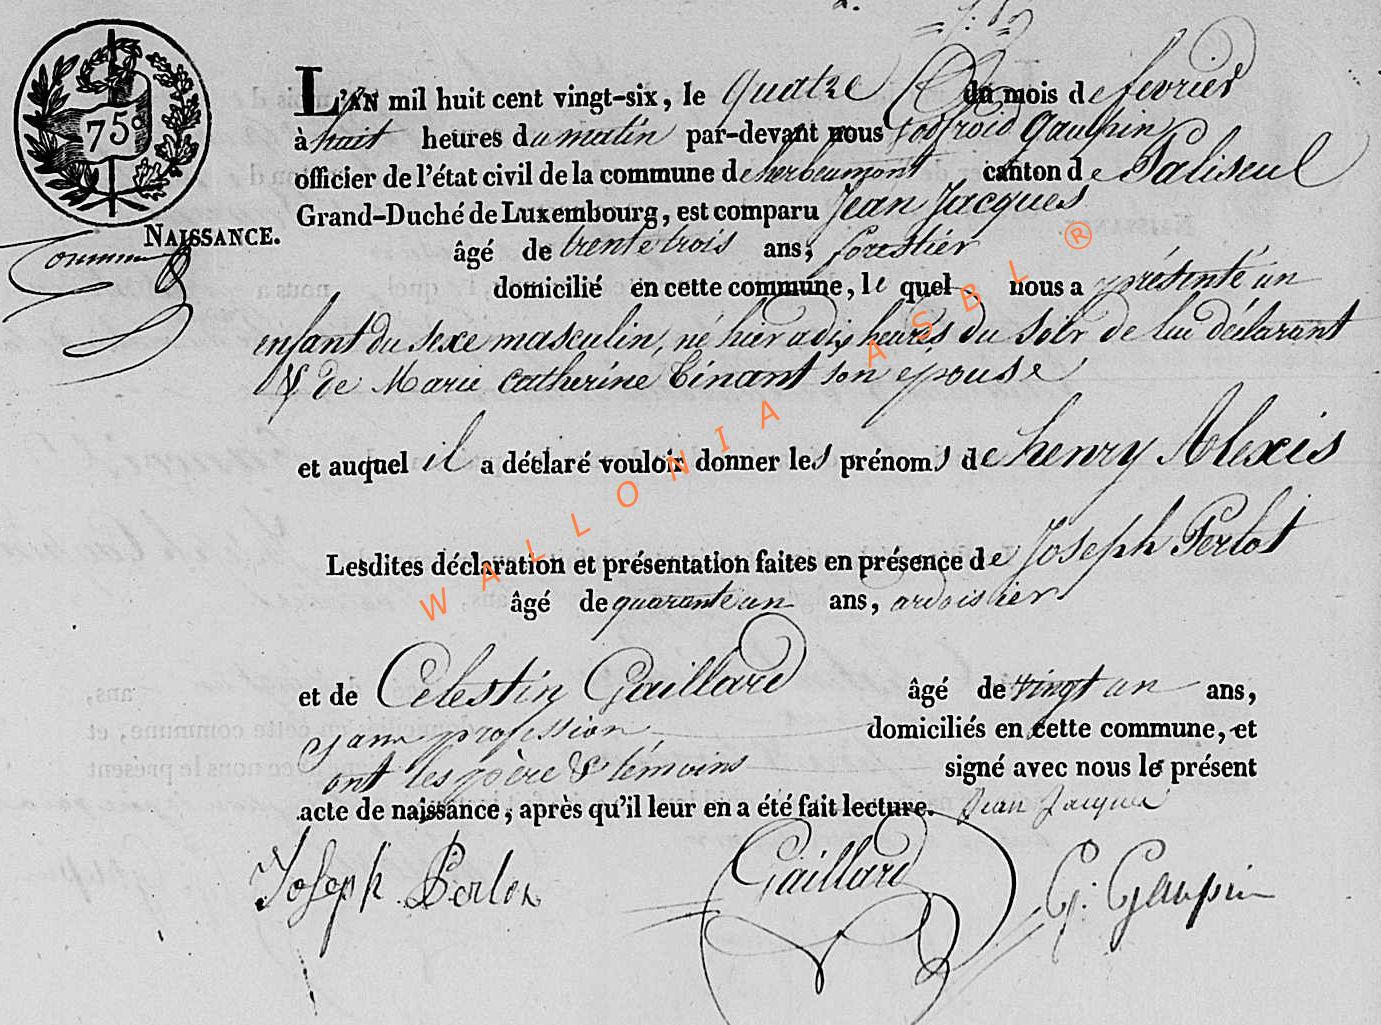 75
NAISSANCE.
L'AN mil huit cent vingt-six, le quatre du mois de fevrier
à huit heures du matin par-devant nous Godfroid Gaupin
officier de l'état civil de la commune de herbeumont canton de Paliseul
Grand-Duché de Luxembourg, est comparu Jean Jacques
âgé de trente trois ans, forestier
domicilié en cette commune, le quel nous a présenté un
enfant du sexe masculin, né hier a dix heures du soir de lui déclarant
& de Marie Catherine Tinant son epouse
et auquel il a déclaré vouloir donner les prénoms de henry Alexis
Lesdites déclaration et présentation faites en présence de Joseph Perlot
âgé de quarante un ans, ardoisier
et de Celestin Gaillard âgé de vingt un ans,
sans profession domiciliés en cette commune, et
ont les père & témoins signé avec nous le présent
acte de naissance, après qu'il leur en a été fait lecture. Jean Jacques
Joseph Perlot Gaillard G. Gaupin
WALLONIA ASBL ®